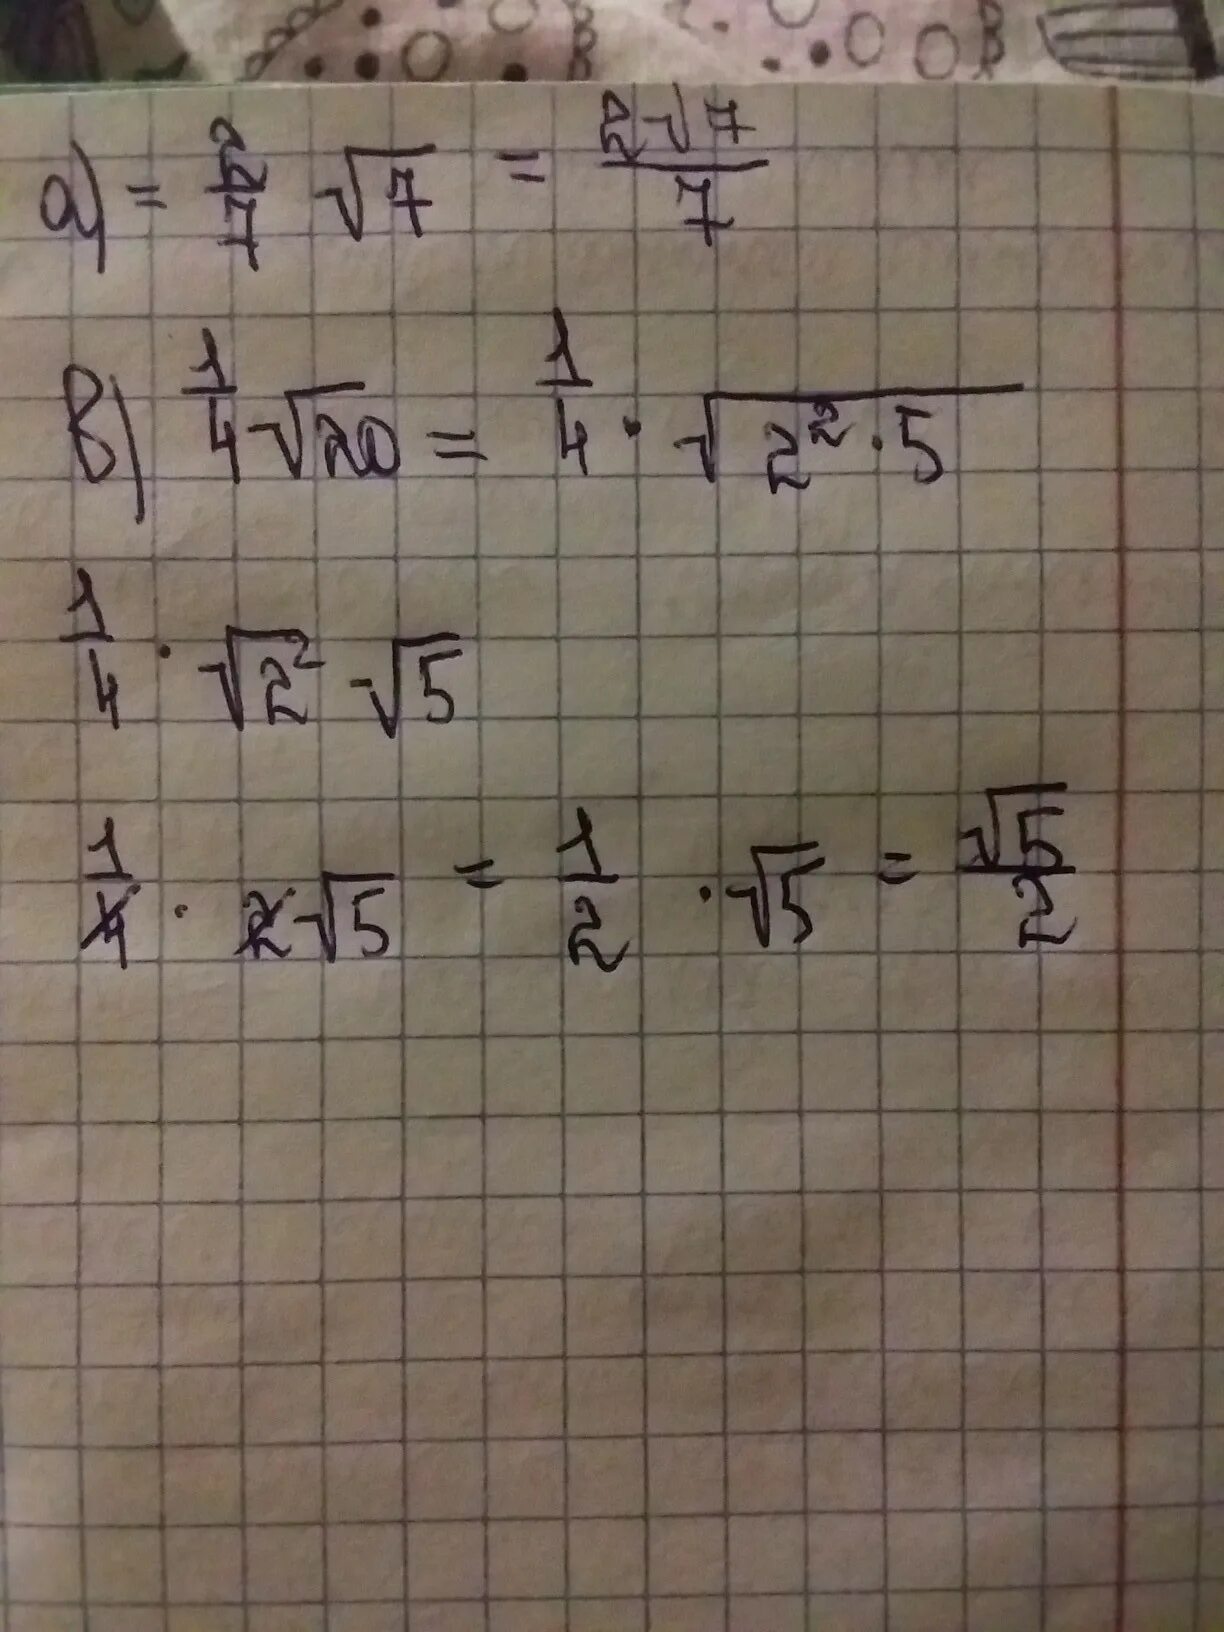 а) = 2/7 √7 = 2√7/7
в) 1/4 √20 = 1/4 · √(2² · 5)
1/4 · √2² √5
1/4 · 2√5 = 1/2 · √5 = √5/2